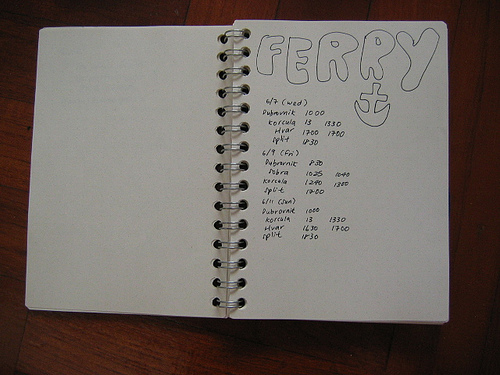 FERRY
6/7 (wed)
Dubrovnik 1000
Korcula 13 1330
Hvar 1700 1700
Split 1830
6/9 (Fri)
Dubrovnik 830
Sobra 1025 1040
Korcula 1240 1300
Split 1700
6/11 (Sun)
Dubrovnik 1000
Korcula 13 1330
Hvar 1630 1700
Split 1830